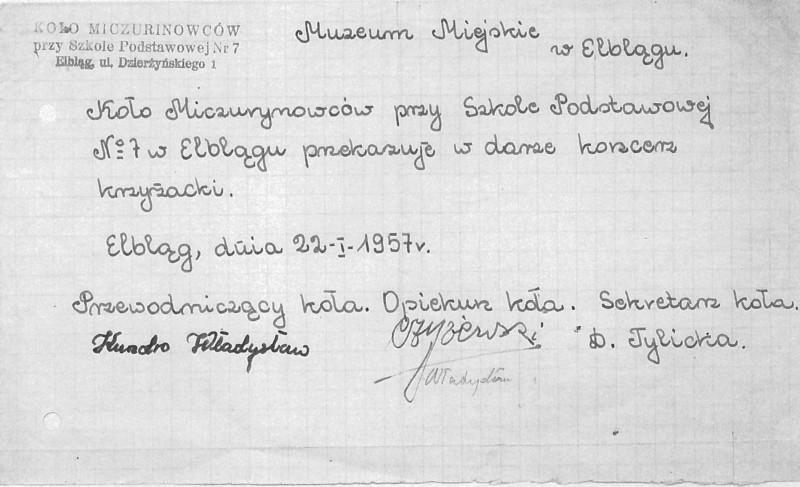 KOŁO MICZURINOWCÓW
przy Szkole Podstawowej Nr 7
Elbląg, ul. Dzierżyńskiego 1
Muzeum Miejskie
w Elblągu.
Koło Miczurynowców przy Szkole Podstawowej
No 7 w Elblągu przekazuje w darze korzerz
krzyżacki.
Elbląg, dnia 22-I-1957r.
Przewodniczący koła. Opiekun koła. Sekretarz koła.
Kundro Władysław
Czyżewski
D. Tylicka.
Władysław